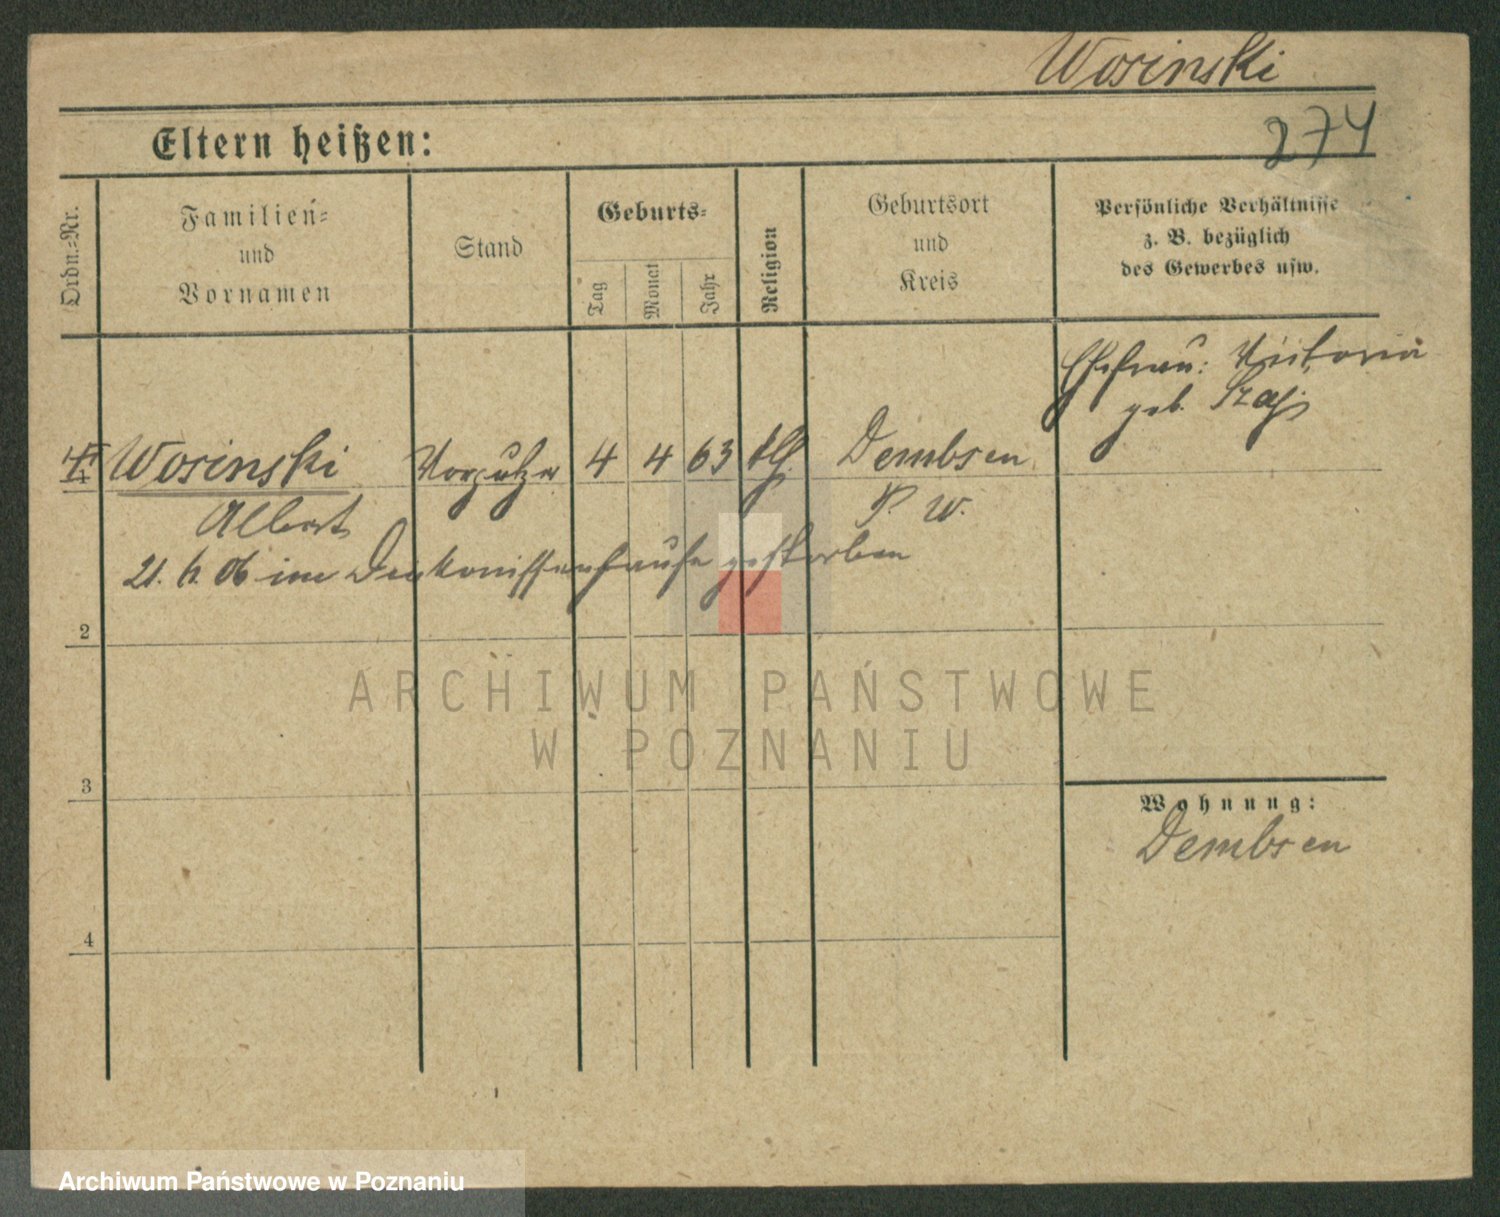 Wosinski
274
Eltern heißen:
Ordn.=Nr.
Familien=
und
Vornamen
Stand
Geburts=
Tag
Monat
Jahr
Religion
Geburtsort
und
Kreis
Persönliche Verhältnisse
z. B. bezüglich
des Gewerbes usw.
Ehefrau: Victoria
geb.
Wosinski 4 4 63 kth. Dembsen
Albert P. W.
21. 6. 06 im Diakonissenhause gestorben
2
3
4
Wohnung:
Dembsen
ARCHIWUM PAŃSTWOWE
W POZNANIU
Archiwum Państwowe w Poznaniu